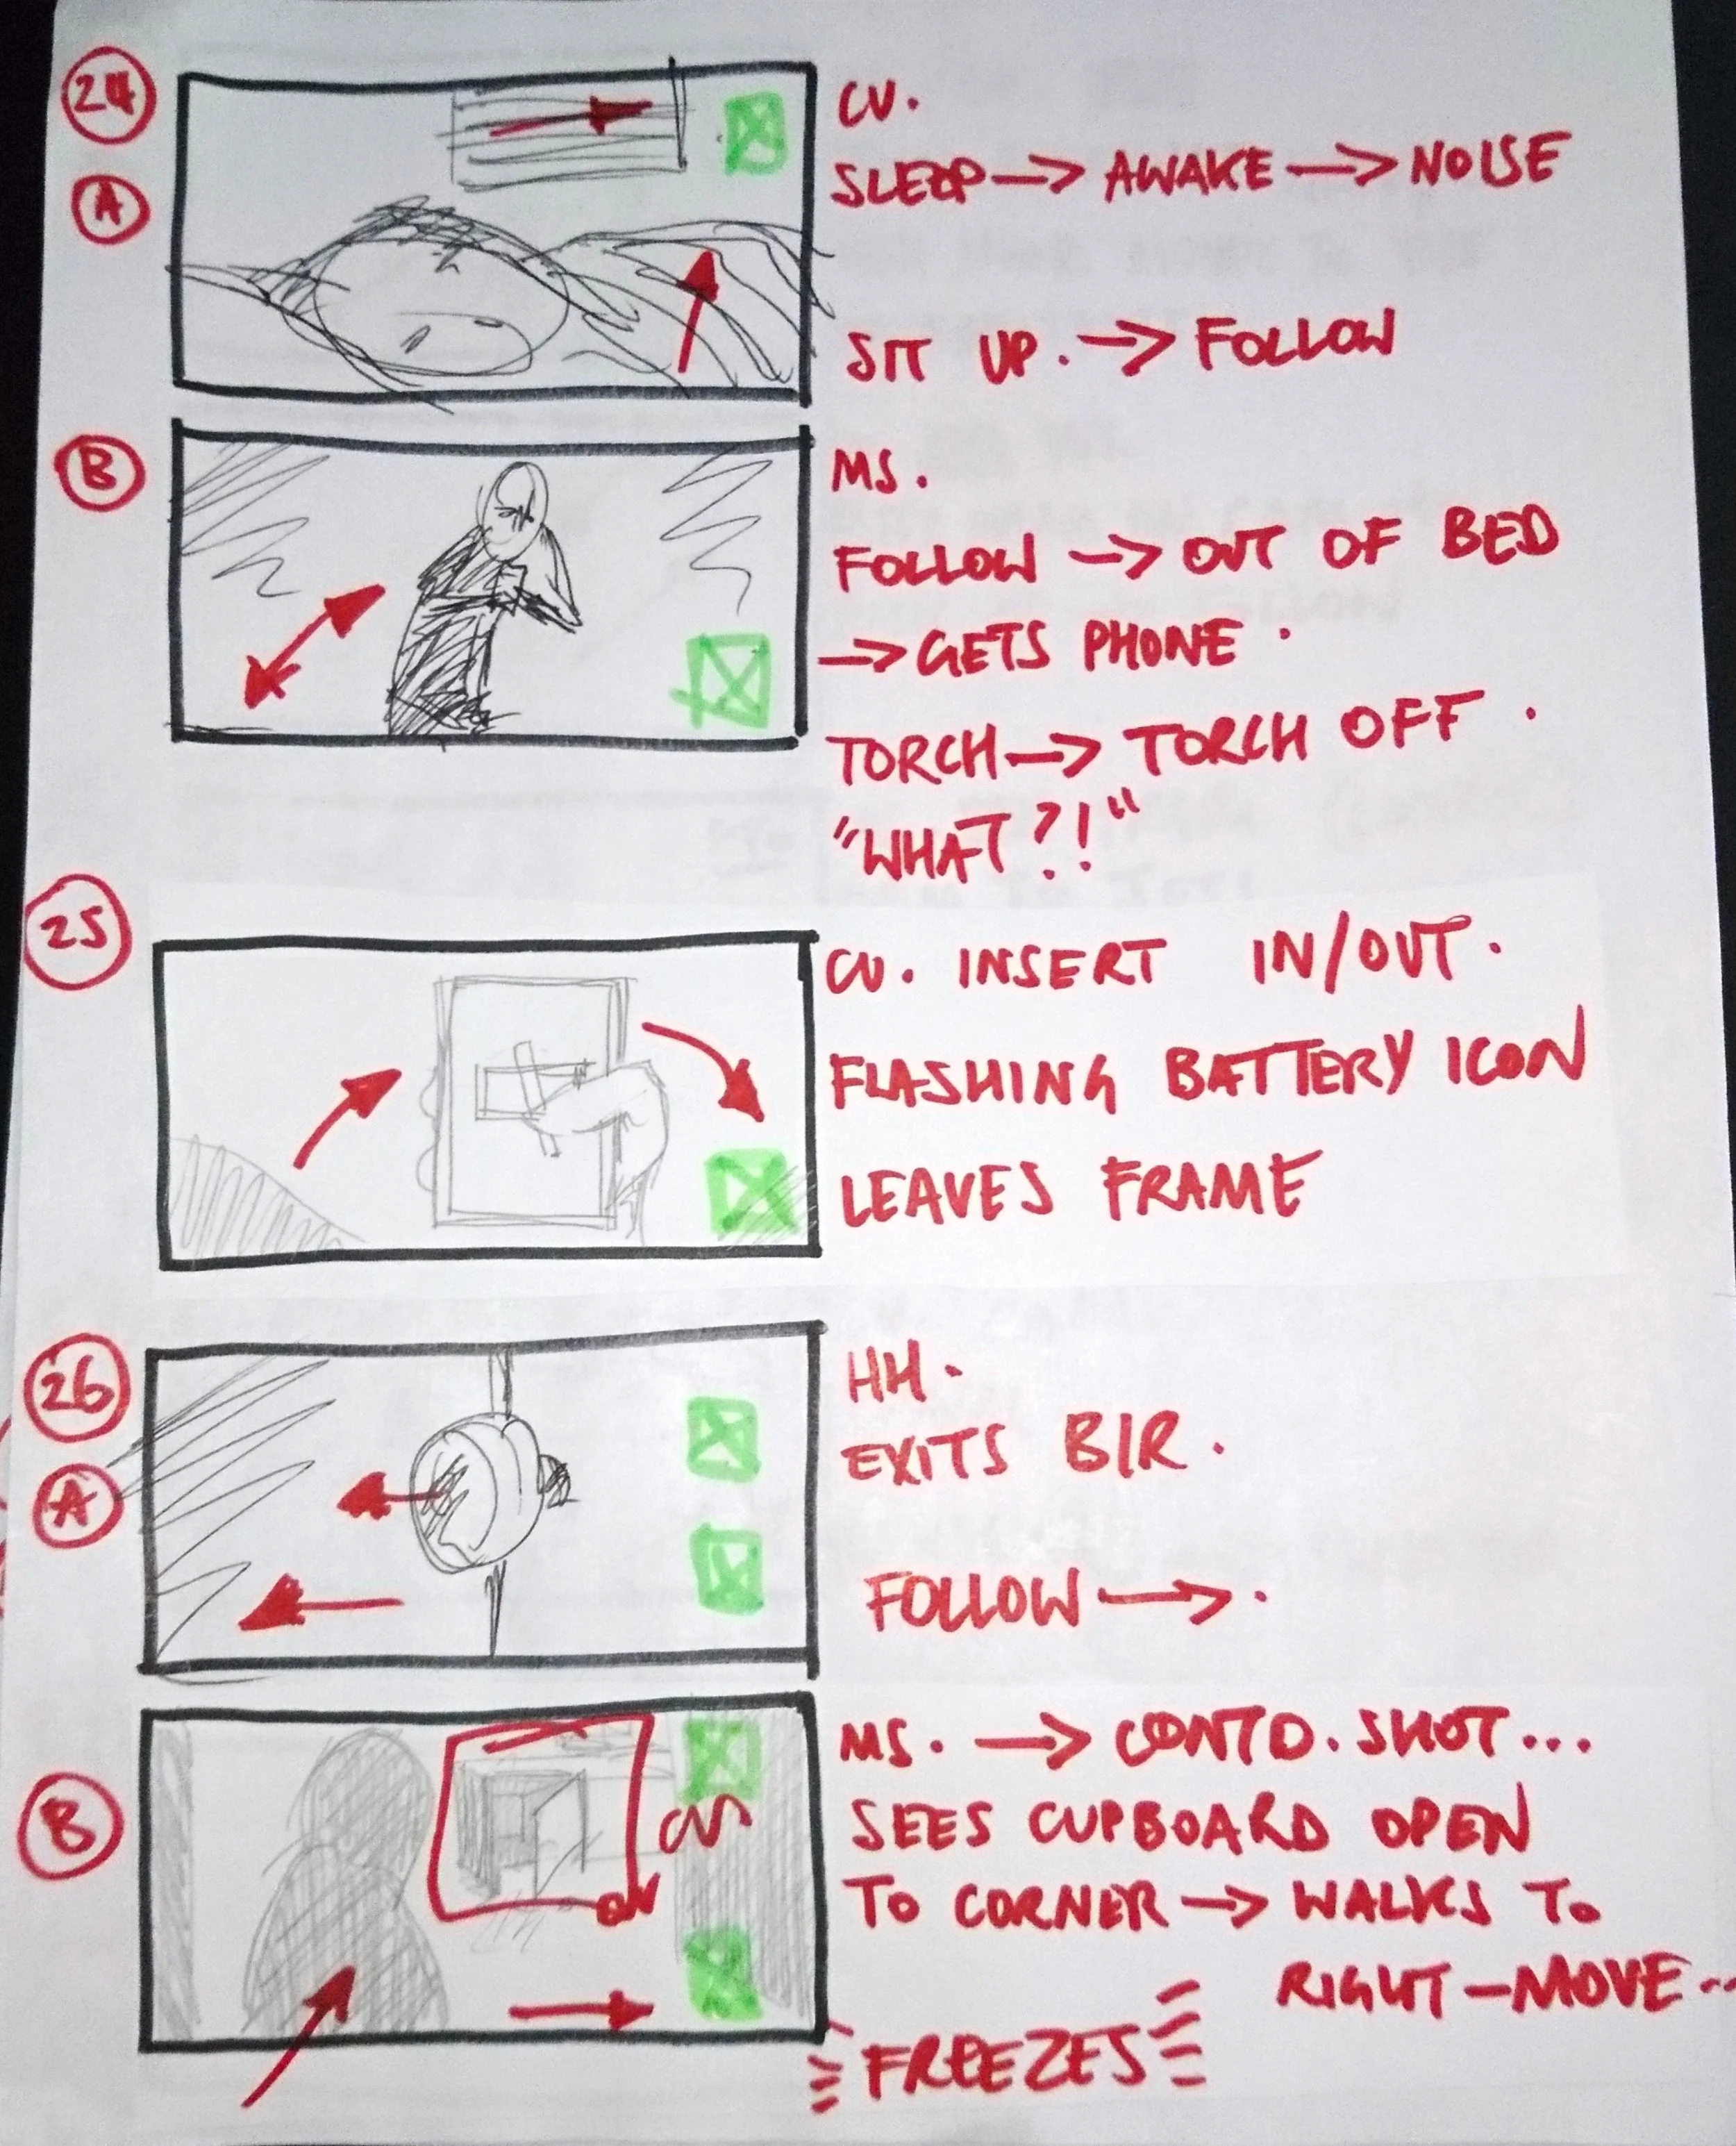 24
CU.
A
SLEEP → AWAKE → NOISE
SIT UP. → FOLLOW
B
MS.
FOLLOW → OUT OF BED
→ GETS PHONE.
TORCH → TORCH OFF.
"WHAT?!"
25
CU. INSERT IN/OUT.
FLASHING BATTERY ICON
LEAVES FRAME
26
HH.
EXITS B/R.
A
FOLLOW → .
B
MS. → CONTD. SHOT...
SEES CUPBOARD OPEN
TO CORNER → WALKS TO
RIGHT - MOVE...
FREEZES